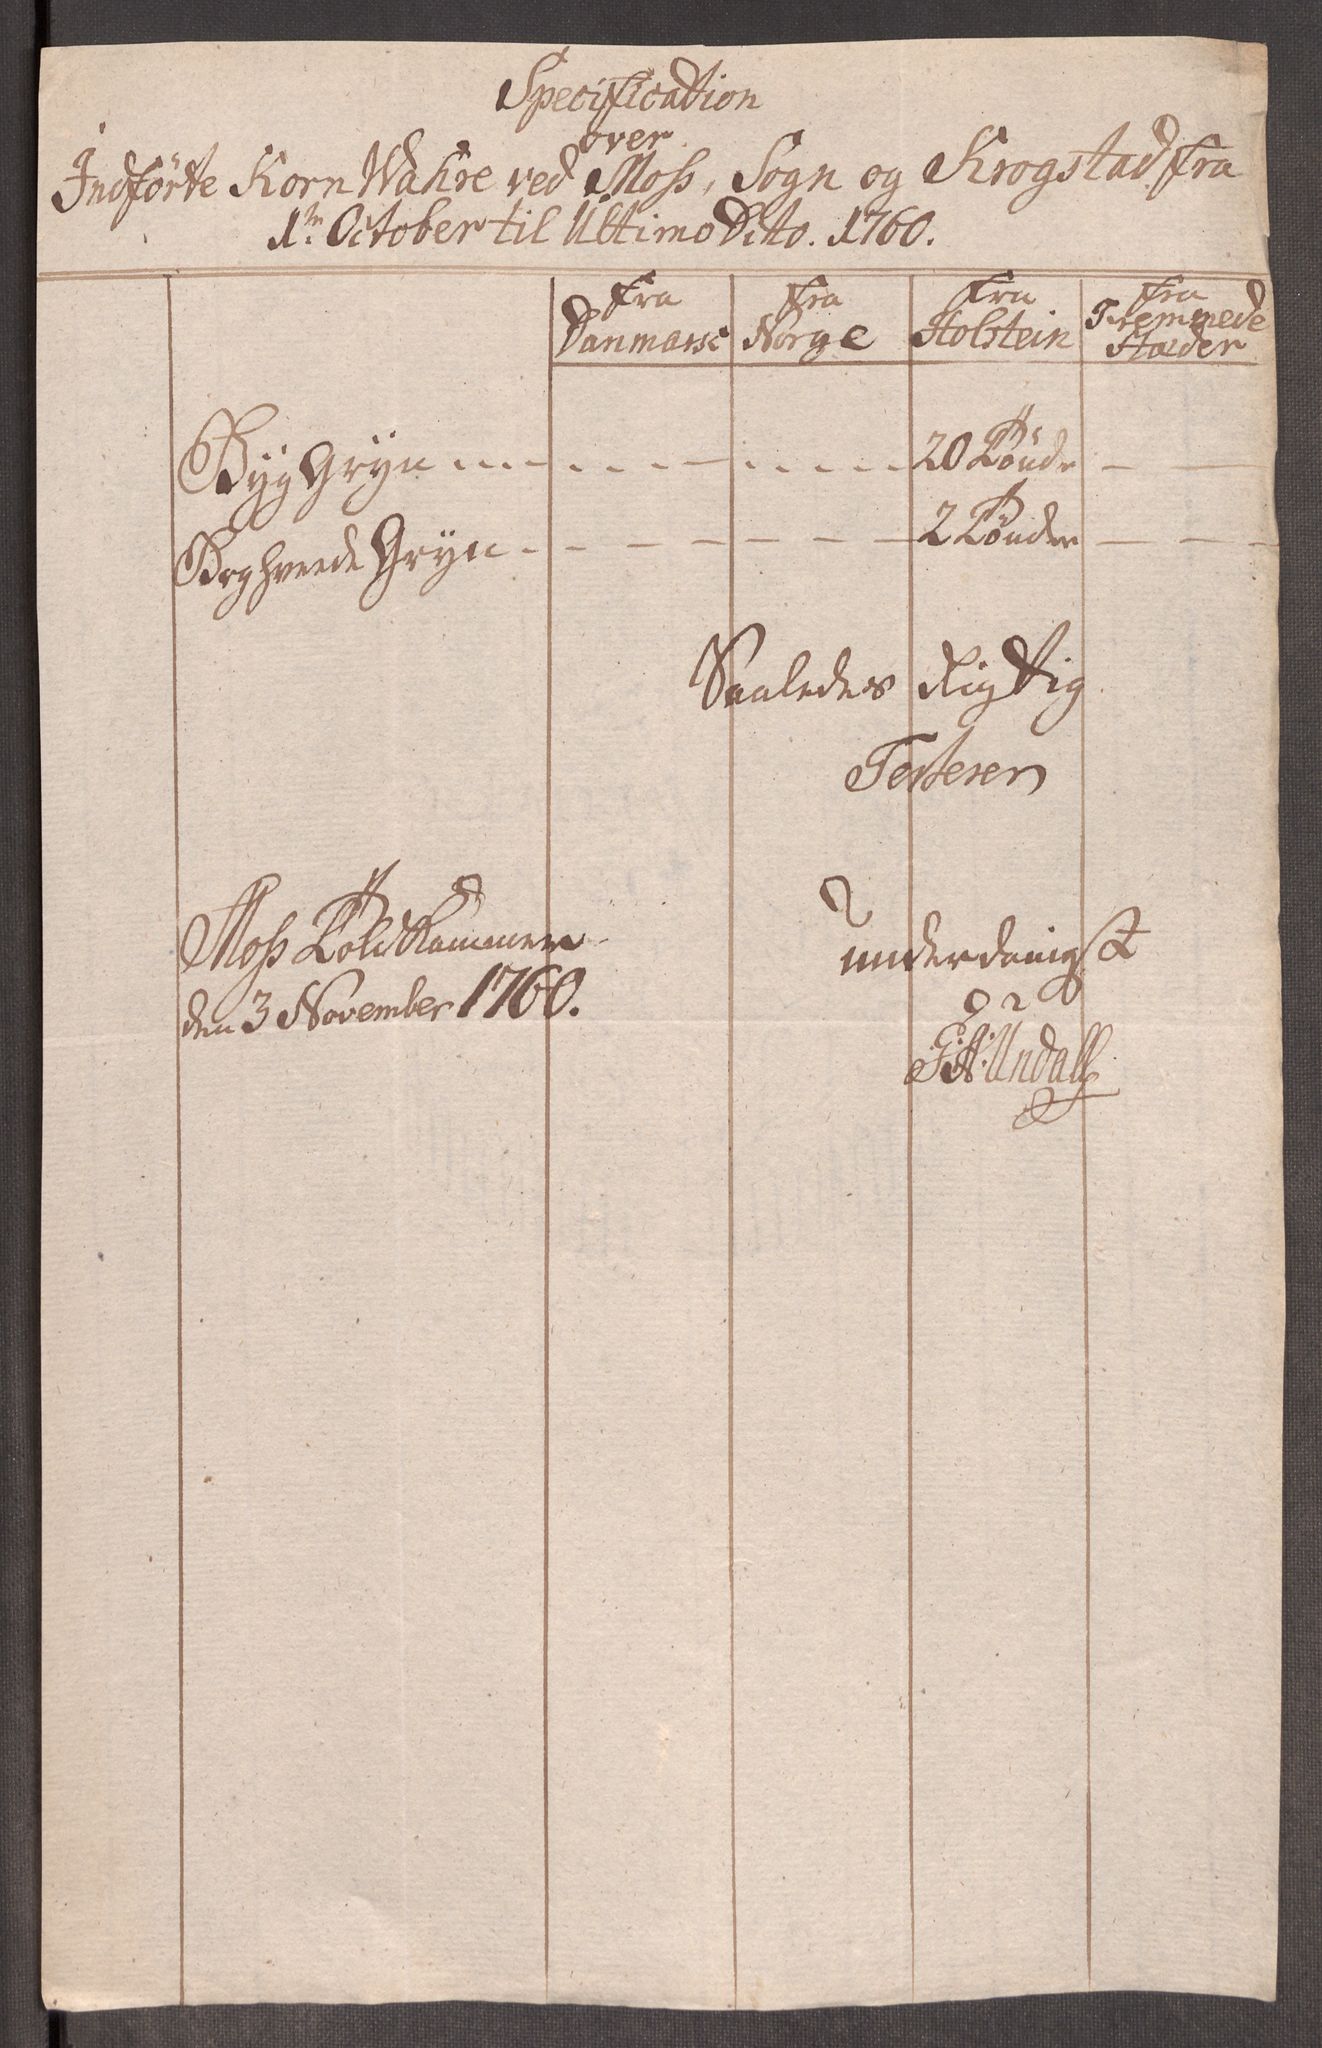 Specification
over
Indförte Korn Wahre ved Moss, Sogn og Krogstad fra
1m October til Ultimo Dito. 1760.
fra Danmarc fra Norge fra Holstein fra Fremmede Stæder
Byg Gryn 20 Tönde
Boghvede Gryn 2 Tönder
Saaledes Rigtig
Testerer
Moss Told Kammer
den 3 November 1760.
underdanigst
Undall